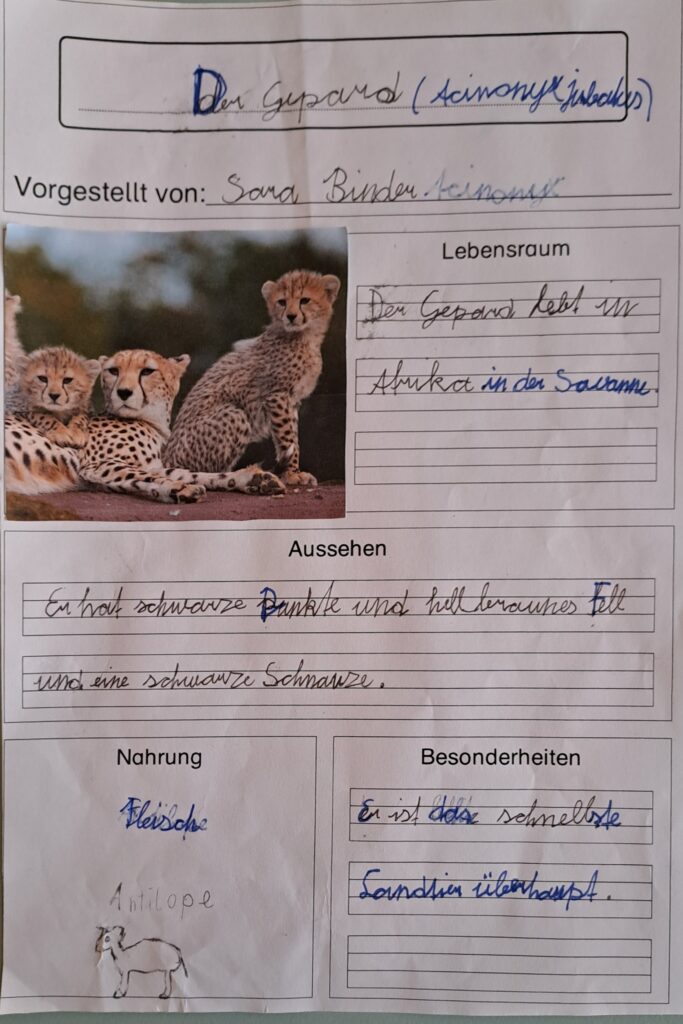 Der Gepard (Acinonyx jubatus)
Vorgestellt von: Sara Binder Acinonyx
Lebensraum
Der Gepard lebt in
Afrika in der Savanne.
Aussehen
Er hat schwarze Punkte und hellbraunes Fell
und eine schwarze Schnauze.
Nahrung
Fleisch
Antilope
Besonderheiten
Er ist das schnellste
Landtier überhaupt.